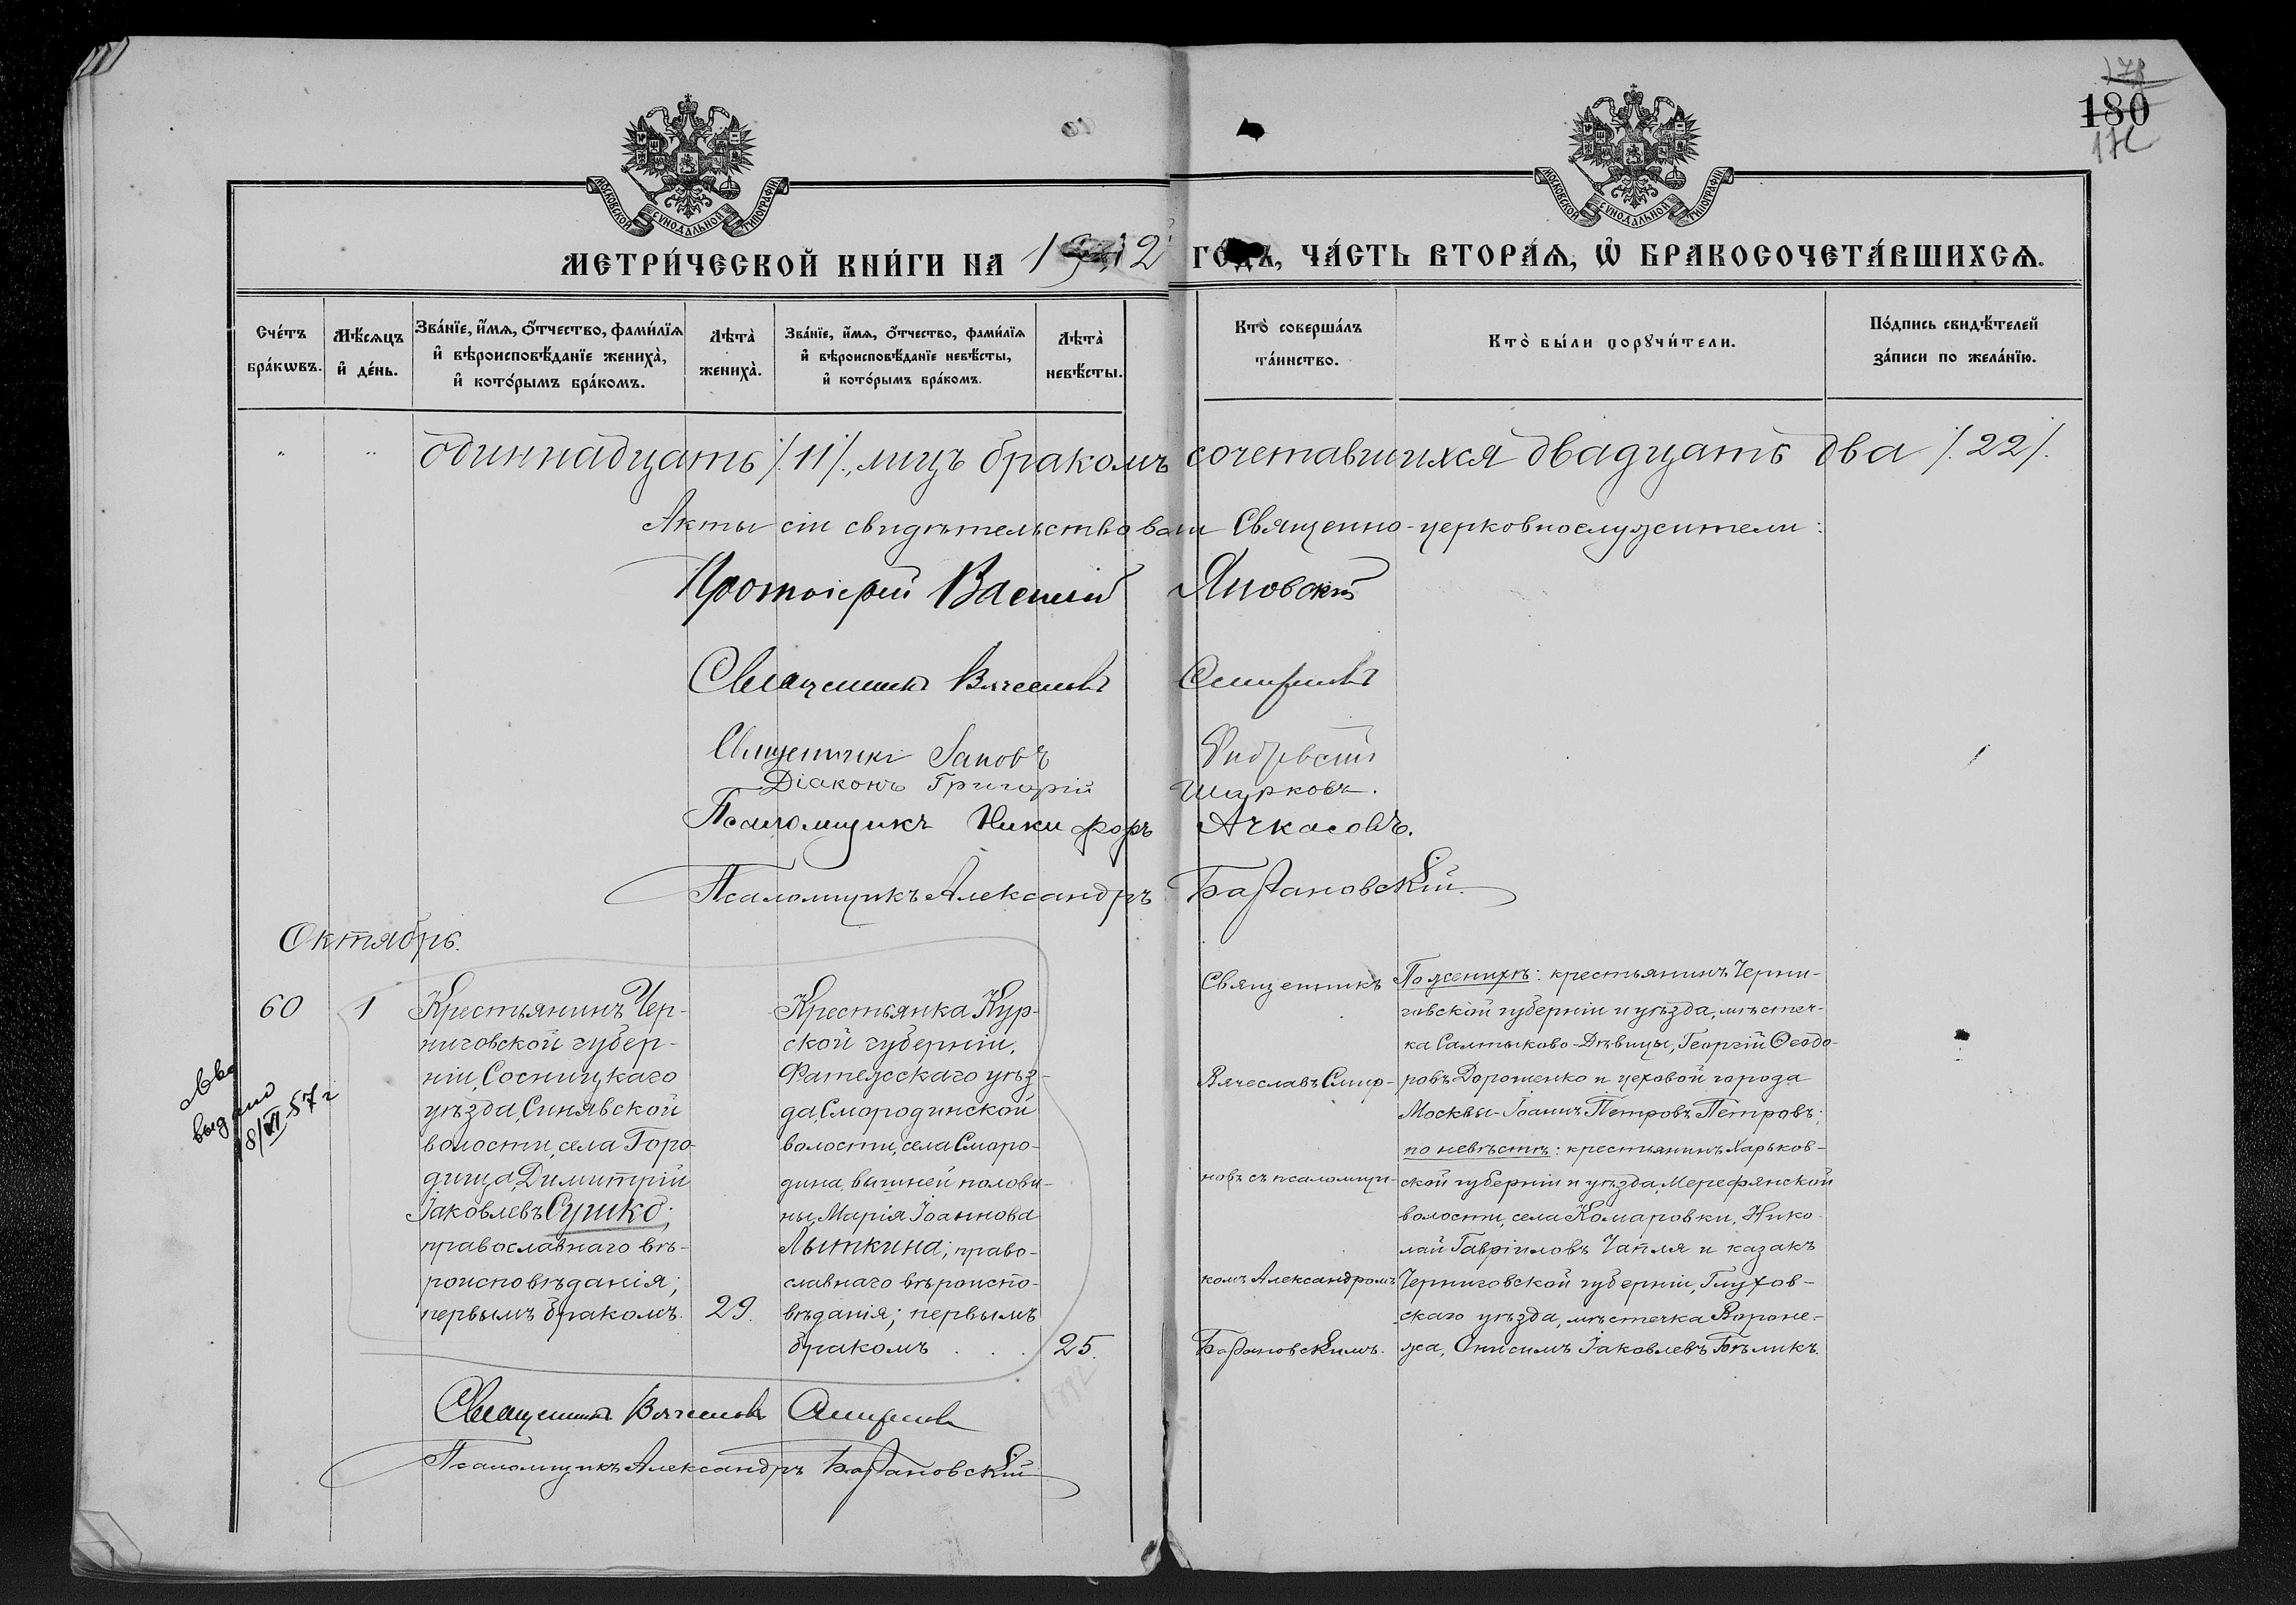 180
МОСКОВСКОЙ СѴНОДАЛЬНОЙ ТИПОГРАФІИ
МОСКОВСКОЙ СѴНОДАЛЬНОЙ ТИПОГРАФІИ
МЕТРИ́ЧЕСКОЙ КНИ́ГИ НА 1912 ГО́ДЪ, ЧА́СТЬ ВТОРА́Ѧ, Ѽ БРАКОСОЧЕТА́ВШИХСѦ.
Сче́тъ бра́кωвъ.
Мѣ́сѧцъ и҆ де́нь.
Зва́нїе, и҆́мѧ, ѻ҆́тчество, фами́лїѧ и҆ вѣроисповѣ́данїе жениха̀, и҆ кото́рымъ бра́комъ.
Лѣта̀ жениха̀.
Зва́нїе, и҆́мѧ, ѻ҆́тчество, фами́лїѧ и҆ вѣроисповѣ́данїе невѣ́сты, и҆ кото́рымъ бра́комъ.
Лѣта̀ невѣ́сты.
Кто̀ соверша́лъ та́инство.
Кто̀ бы́ли порꙋчи́тели.
По́дпись свидѣ́телей за́писи по жела́нїю.
" "
одиннадцать /.11/., лицъ бракомъ сочетавшихся двадцать два /.22/.
Акты сіи свидѣтельствовали Священно-церковнослужители:
Протоіерей Василій Яновскій
Священникъ Вячеславъ Смирновъ
Священникъ Іаковъ
Діаконъ Григорій Шарковъ.
Псаломщикъ Никифоръ Ачкасовъ.
Псаломщикъ Александръ Багановскій.
Октябрь.
60
1
Крестьянинъ Чер-
ниговской губер-
ніи, Сосницкаго
уѣзда, Синявской
волости, села Горо-
дища, Димитрій
Іаковлевъ Сушко;
православнаго вѣ-
роисповѣданія;
первымъ бракомъ.
29.
Крестьянка Кур-
ской губерніи,
Фатежскаго уѣз-
да, Смородинской
волости, села Сморо-
дина, вышней полови-
ны, Марія Іоаннова
Лыткина; право-
славнаго вѣроиспо-
вѣданія; первымъ
бракомъ . . .
25.
Священникъ
Вячеславъ Смир-
новъ съ псаломщи-
комъ Александромъ
Багановскимъ.
По женихѣ: крестьянинъ Черни-
говской губерніи и уѣзда, мѣстеч-
ка Салтыково-Дѣвицы, Георгій Ѳеодо-
ровъ Дорошенко и цеховой города
Москвы-Іоаннъ Петровъ Петровъ;
по невѣстѣ: крестьянинъ Харьков-
ской губерніи и уѣзда, Мерефянской
волости, села Комаровки, Нико-
лай Гавріиловъ Чапля и казакъ
Черниговской губерніи, Глухов-
скаго уѣзда, мѣстечка Вороне-
жа, Онисимъ Іаковлевъ Бѣликъ.
выдано
8/VI-57 г
Священникъ Вячеславъ Смирновъ
Псаломщикъ Александръ Багановскій